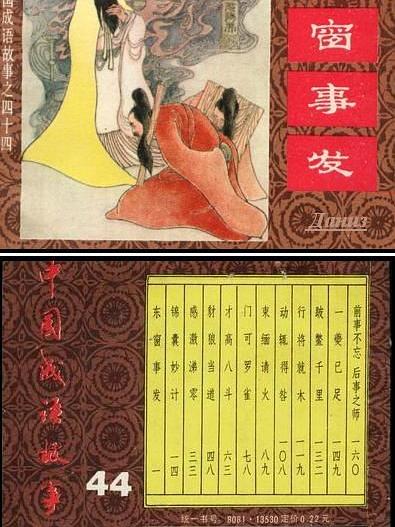 国成语故事之四十四
窗
事
发
Даниз
中国成语故事
44
前事不忘 后事之师 一六〇
一夔已足 一四九
跛鳖千里 一三二
行将就木 一一九
动辄得咎 一〇八
束缊请火 八九
门可罗雀 七八
才高八斗 六三
豺狼当道 四八
感激涕零 三三
锦囊妙计 一四
东窗事发 一
统一书号：8081·13530 定价 0.22元